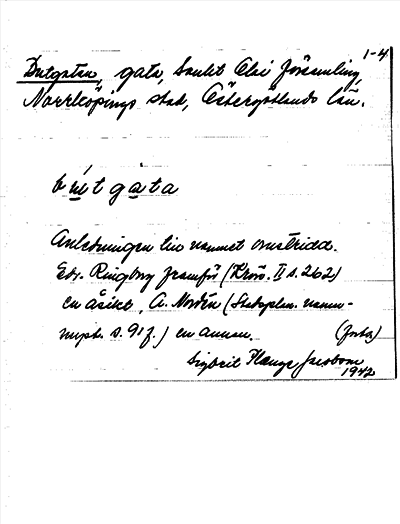 1-4
Butgatan, gata, Sankt Olai församling,
Norrköpings stad, Östergötlands län.
bu̲tga̲ta
Anledningen till namnet omstridd.
Edv. Ringborg framför (Krön. II s. 262)
en åsikt, A. Nordén (Stadsplan. namn-
mysk. s. 91 f.) en annan. (forts)
Sigbrit Plænge Jacobson
1942